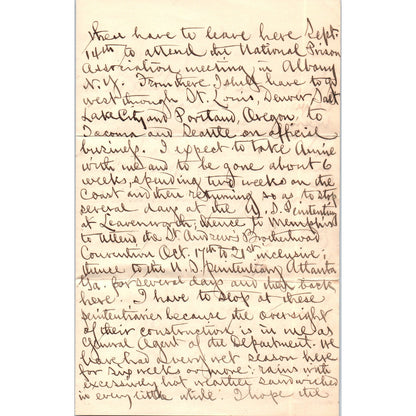 then have to leave here Sept.
14th to attend the National Prison
Association meeting in Albany
N.Y. From there, I shall have to go
west through St. Louis, Denver, Salt
Lake City and Portland, Oregon, to
Tacoma and Seattle on official
business. I expect to take Annie
with me and to be gone about 6
weeks, spending two weeks on the
coast and then returning so as to stop
several days at the U.S. Penitentiary
at Leavenworth; thence to Memphis
to attend the St. Andrew's Brotherhood
Convention Oct. 17th to 21st inclusive;
thence to the U.S. Penitentiary Atlanta
Ga. for several days and then back
here. I have to stop at these
penitentiaries because the oversight
of their construction is in me as
General Agent of the Department. We
have had a very wet season here
for six weeks or more; rains with
excessively hot weather sandwiched
in every little while. I hope the